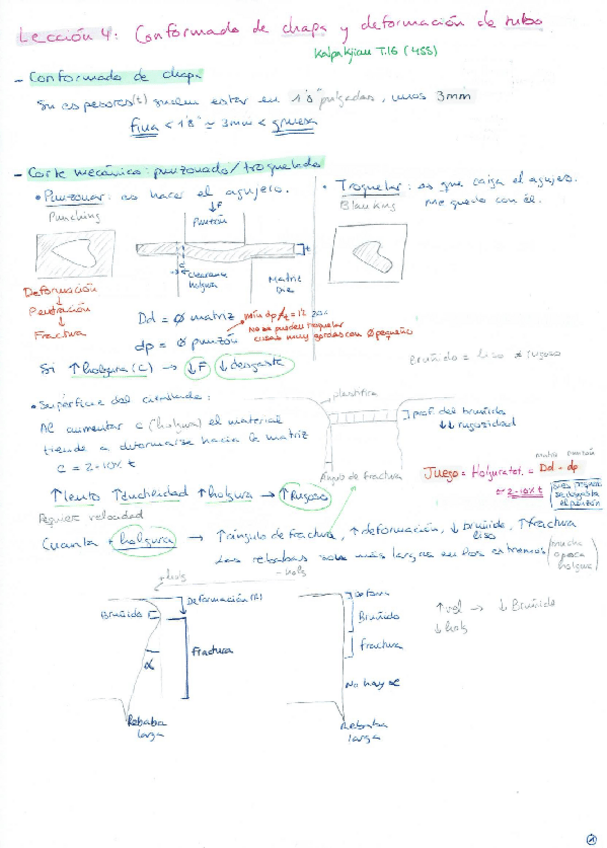 Lección 4: Conformado de chapa y deformación de tubo
Kalpakjian T.16 (455)
- Conformado de chapa
Su espesores(t) suelen estar en 1'8" pulgadas, unos 3mm
fina < 1'8" ≃ 3mm < gruesa
- Corte mecánico: punzonado/troquelado
• Punzonar: es hacer el agujero.
Punching
• Troquelar: es que caiga el agujero.
Blanking me quedo con él.
↓F
Punzón
t
c
clearance
holgura
Matriz
Die
Deformación
↓
Penetración
↓
Fractura
Dd = Ø matriz
dp = Ø punzón
No se pueden troquelar
cosas muy gordas con Ø pequeño
Si ↑holgura (c) → ↓F ↓desgaste
Bruñido = liso ≠ rugoso
• Superficie del cizallado:
Al aumentar c (holgura) el material
tiende a deformarse hacia la matriz
c = 2-10% t
plastifica
prof. del bruñido
↓↓ rugosidad
Ángulo de fractura
matriz punzón
Juego = Holgura tot. = Dd - dp
≃ 2-10% t
↑lento ↑ductilidad ↑holgura → ↑Rugoso
Requiere velocidad
Cuanta + holgura → ↑ángulo de fractura, ↑deformación, ↓bruñido, ↑fractura
liso
Las rebabas son más largas en los extremos (mucha o poca holgura)
+ holg
- holg
Deformación (R)
Bruñido
Fractura
α
Rebaba
larga
Deform
Bruñido
Fractura
No hay α
Rebaba
larga
↑vel → ↓Bruñido
↓holg